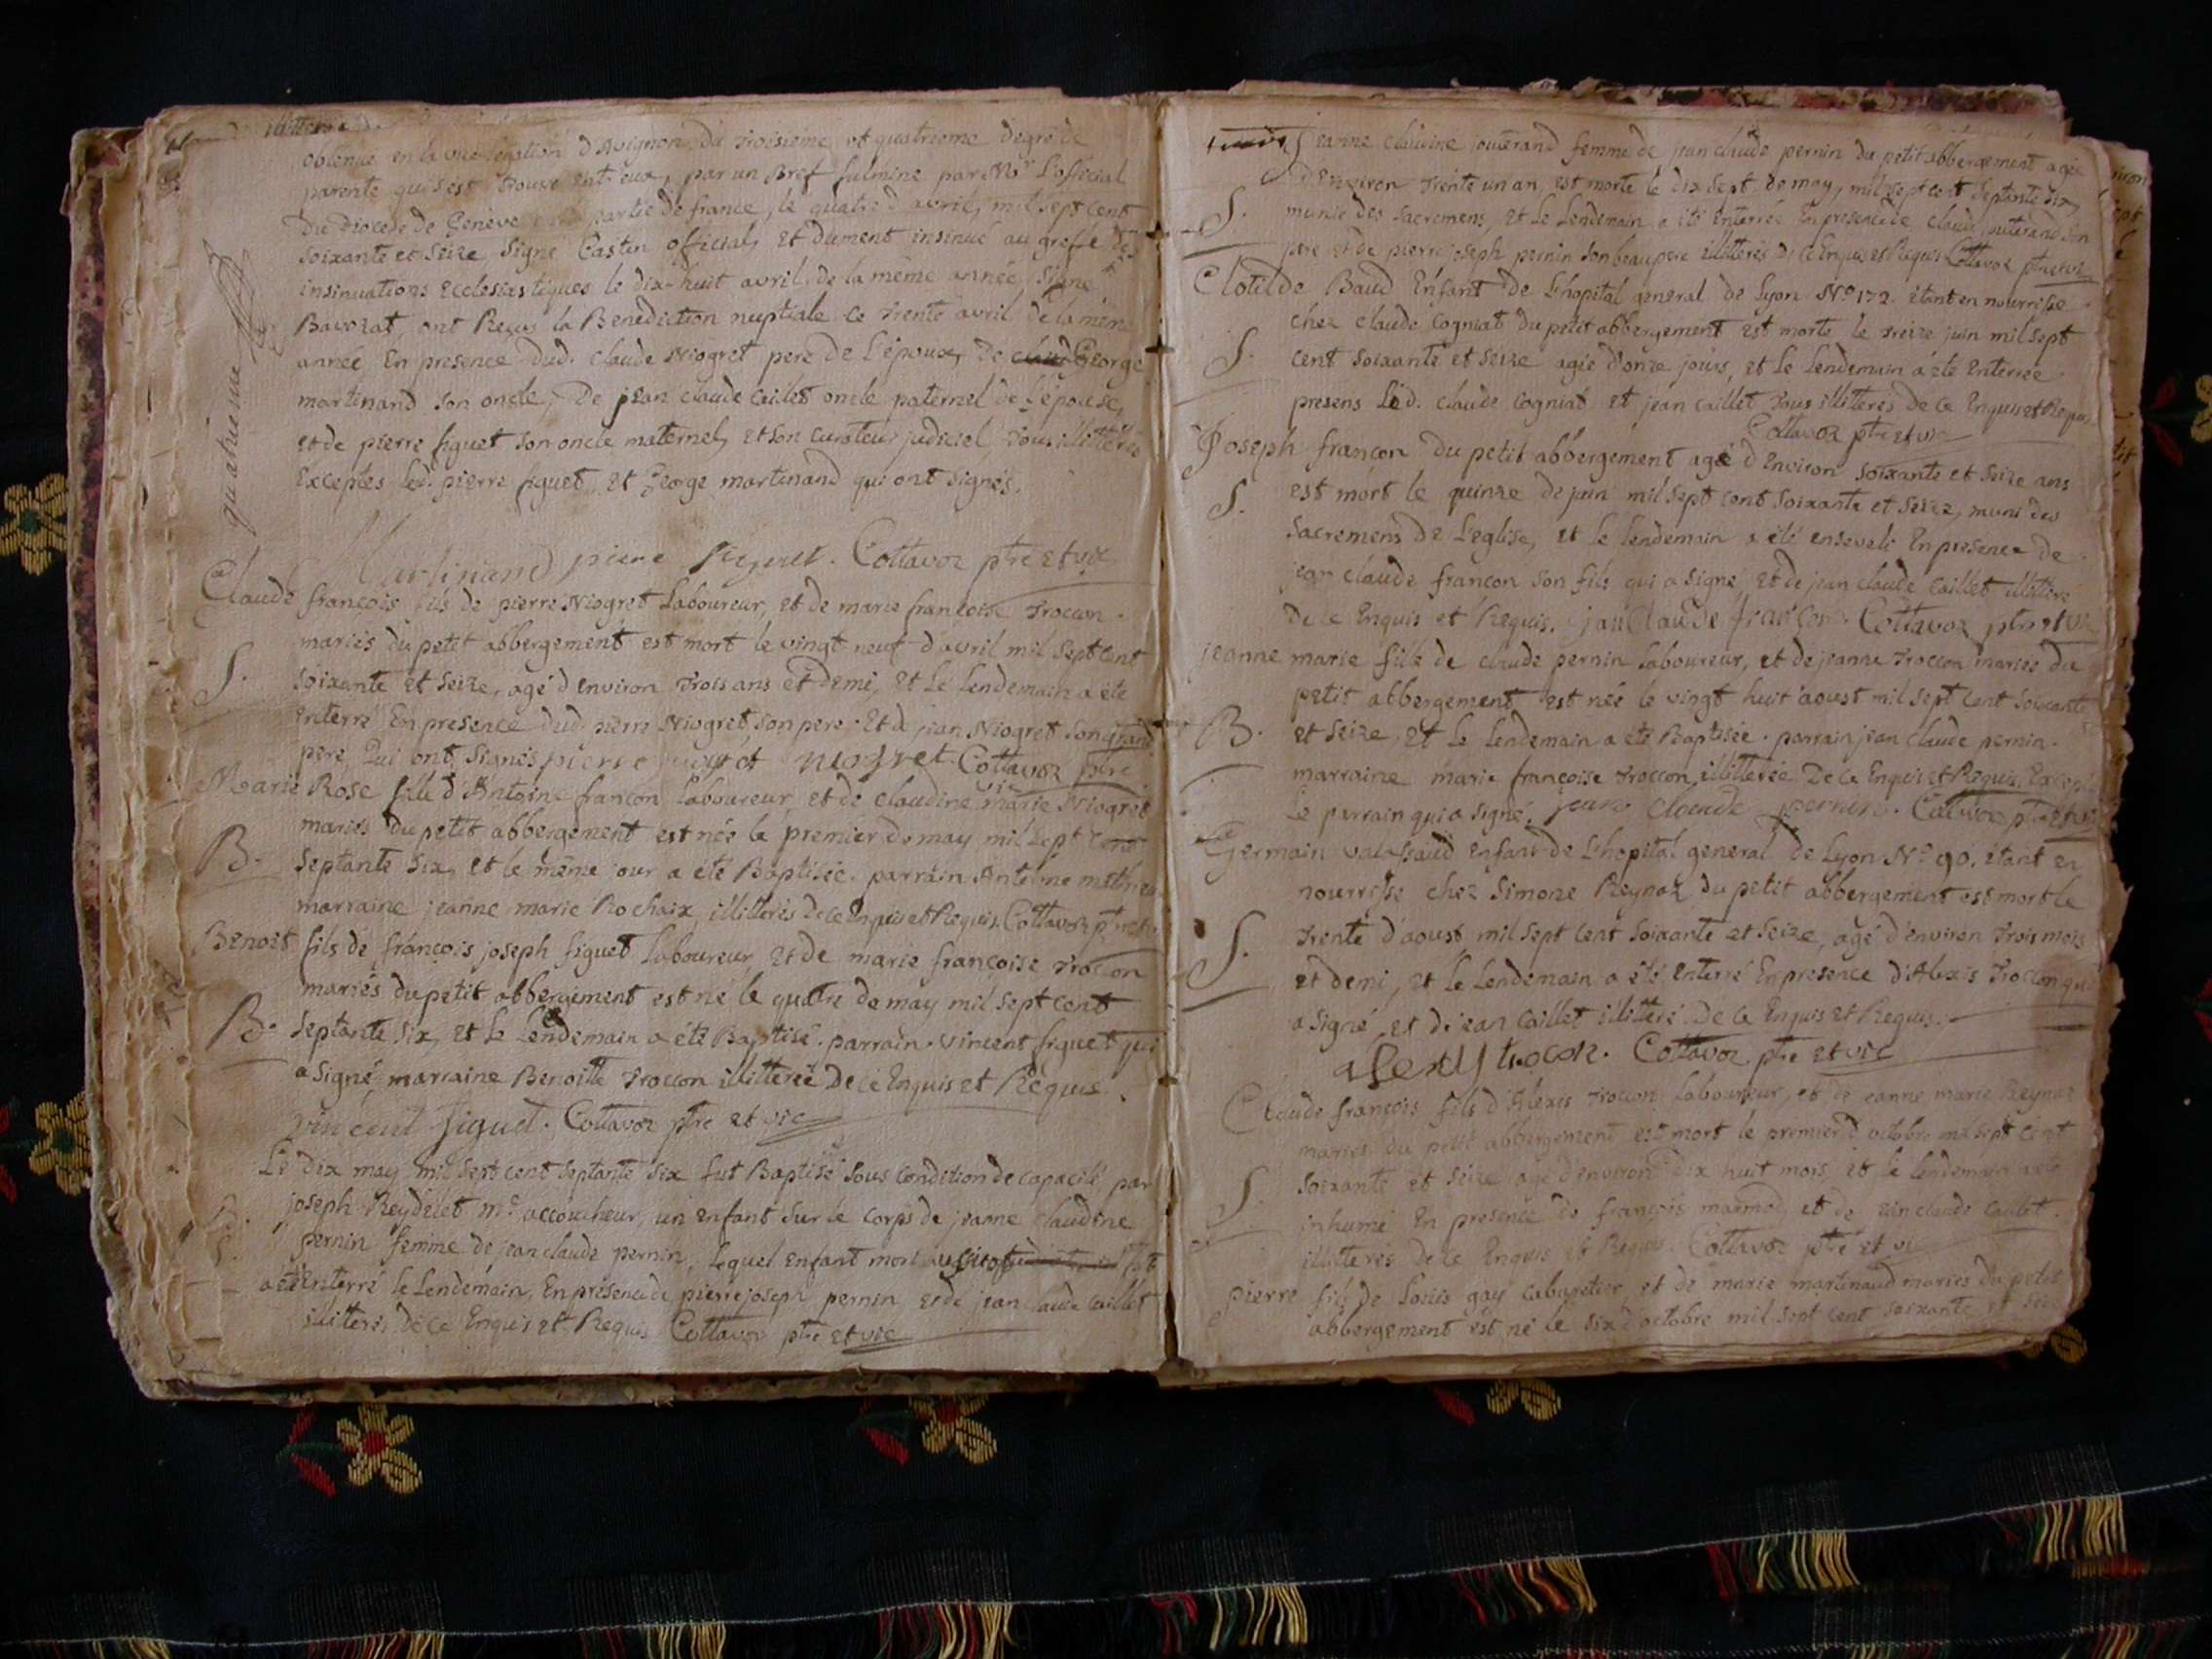 obtenue en la vice legation d'Avignon, du troisieme et quatrieme degré de
parenté qui s'est trouvé entr'eux, par un Bref fulminé par Mr. L'official
Du diocese de Genéve partie de france, le quatre d'avril, mil sept cent
soixante et seize Signé Castin official, et dument insinué au greffe des
insinuations Ecclesiastiques le dix-huit avril de la même année, Signé
Bavozat, ont Reçus la Benediction nuptiale ce trente avril de la même
année En presence dud. claude Niogret pere de L'époux, De George
martinand son oncle, De jean claude Caillet oncle paternel de L'épouse,
et de pierre figuet son oncle maternel, et son curateur judiciel, tous illitterés
Exceptés led. pierre figuet, et George martinand qui ont signés.
quatrieme
Martinand pierre figuet. Collavoz ptre et vic
Claude françois fils de pierre Niogret Laboureur, et de marie françoise Troccon
mariés du petit abbergement est mort le vingt neuf d'avril mil sept cent
S. soixante et seize, agé d'environ trois ans et demi, et Le Lendemain a été
Enterré En presence dud. pierre Niogret, son pere, Et de jean Niogret son grand
pere, Qui ont Signés pierre niogret Collavoz ptre
vic
Marie Rose fille d'Antoine françon Laboureur, et de Claudine marie Niogret
mariés du petit abbergement est née le premier de may mil sept cent
B. Septante six, et le même jour a été Baptisée. parrain Antoine
marraine jeanne marie Rochaix, illitterés de ce Enquis et Requis. Collavoz
Benoit fils de françois joseph figuet Laboureur, et de marie françoise Troccon
mariés du petit abbergement est né le quatre de may mil sept cent
B. Septante six, et le Lendemain a été Baptisé. parrain. vincent figuet qui
a Signé, marraine Benoitte Troccon illitterée De ce Enquis et Requise.
vincent figuet. Collavoz ptre et vic
Le dix may mil sept cent septante six fut Baptisé Sous condition de capacité, par
joseph Reydelet me. accoucheur, un enfant sur le corps de jeanne claudine
pernin femme de jean claude pernin, Lequel enfant mort aussitot
a été Enterré le Lendemain, En presence de pierre joseph pernin et de jean claude Caillet
illitterés de ce Enquis et Requis Collavoz ptre et vic
jeanne claudine jouterand femme de jean claude pernin du petit abbergement agée
D'Environ trente un an, est morte le dix sept de may, mil sept cent septante six
S. munie des sacremens, et Le Lendemain a été Enterrée En presence de claude jouterand son
pere et de pierre joseph pernin son beau pere illitterés De ce Enquis et Requis Collavoz ptre et vic
Clotilde Baud Enfant de L'hopital general de Lyon No. 172. étant en nourrisse
chez claude Cogniat du petit abbergement est morte le treize juin mil sept
S. cent soixante et seize agée d'onze jours, et Le Lendemain a été Enterrée.
presens Led. claude cogniat et jean caillet tous illitterés de ce Enquis et Requis
Collavoz ptre et vic
Joseph françon du petit abbergement agé d'Environ soixante et seize ans
S. est mort le quinze de juin mil sept cent soixante et seize, muni des
sacremens de L'eglise, et le lendemain a été enseveli En presence de
jean claude françon son fils qui a signé, et de jean claude Caillet illitteré
de ce Enquis et Requis. jan Claude françon. Collavoz ptre et vic
jeanne marie fille de claude pernin Laboureur, et de jeanne Troccon mariés du
petit abbergement est née le vingt huit aoust mil sept cent soixante
B. et seize, et Le Lendemain a été Baptisée. parrain jean claude pernin.
marraine marie françoise Troccon illitterée De ce Enquis et Requis. Excepté
Le parrain qui a signé. jean claude pernin. Collavoz ptre et vic
Germain enfant de L'hopital general de Lyon No. 90. étant en
nourrisse chez Simone Reynaz du petit abbergement est mort le
S. trente d'aoust mil sept cent soixante et seize, agé d'environ trois mois
et demi, et Le Lendemain a été Enterré En presence d'Alexis Troccon qui
a signé, et de jean Caillet illitteré De ce Enquis et Requis.
trocon. Collavoz ptre et vic
Claude françois fils d'Alexis Troccon Laboureur, et de jeanne marie Reynaz
mariés du petit abbergement est mort le premier d'octobre mil sept cent
S. soixante et seize agé d'environ dix huit mois, et le lendemain a été
inhumé En presence de françois marmod, et de jean claude Caillet.
illitterés de ce Enquis et Requis Collavoz ptre et vic
pierre fils de Louis gay cabaretier, et de marie martinand mariés du petit
abbergement est né le six d'octobre mil sept cent soixante et